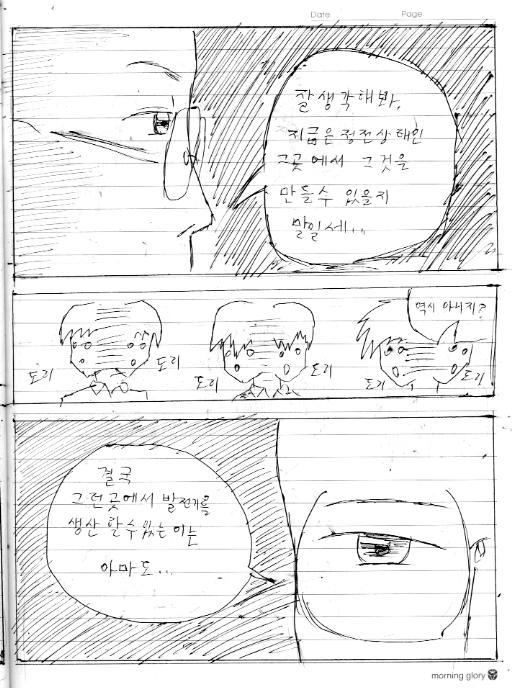 Date
Page
잘생각해봐,
지금은정전상태인
그곳에서 그것을
만들수 있을지
말일세...
역시 아니지?
도리
도리
도리
도리
도리
도리
결국
그런곳에서 발전기를
생산 할수있는 이는
아마도...
morning glory